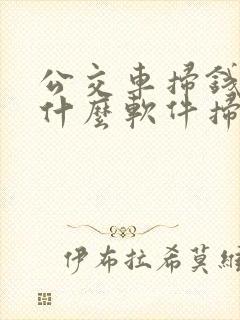 公交車掃錢
什麼軟件掃
伊布拉希莫維